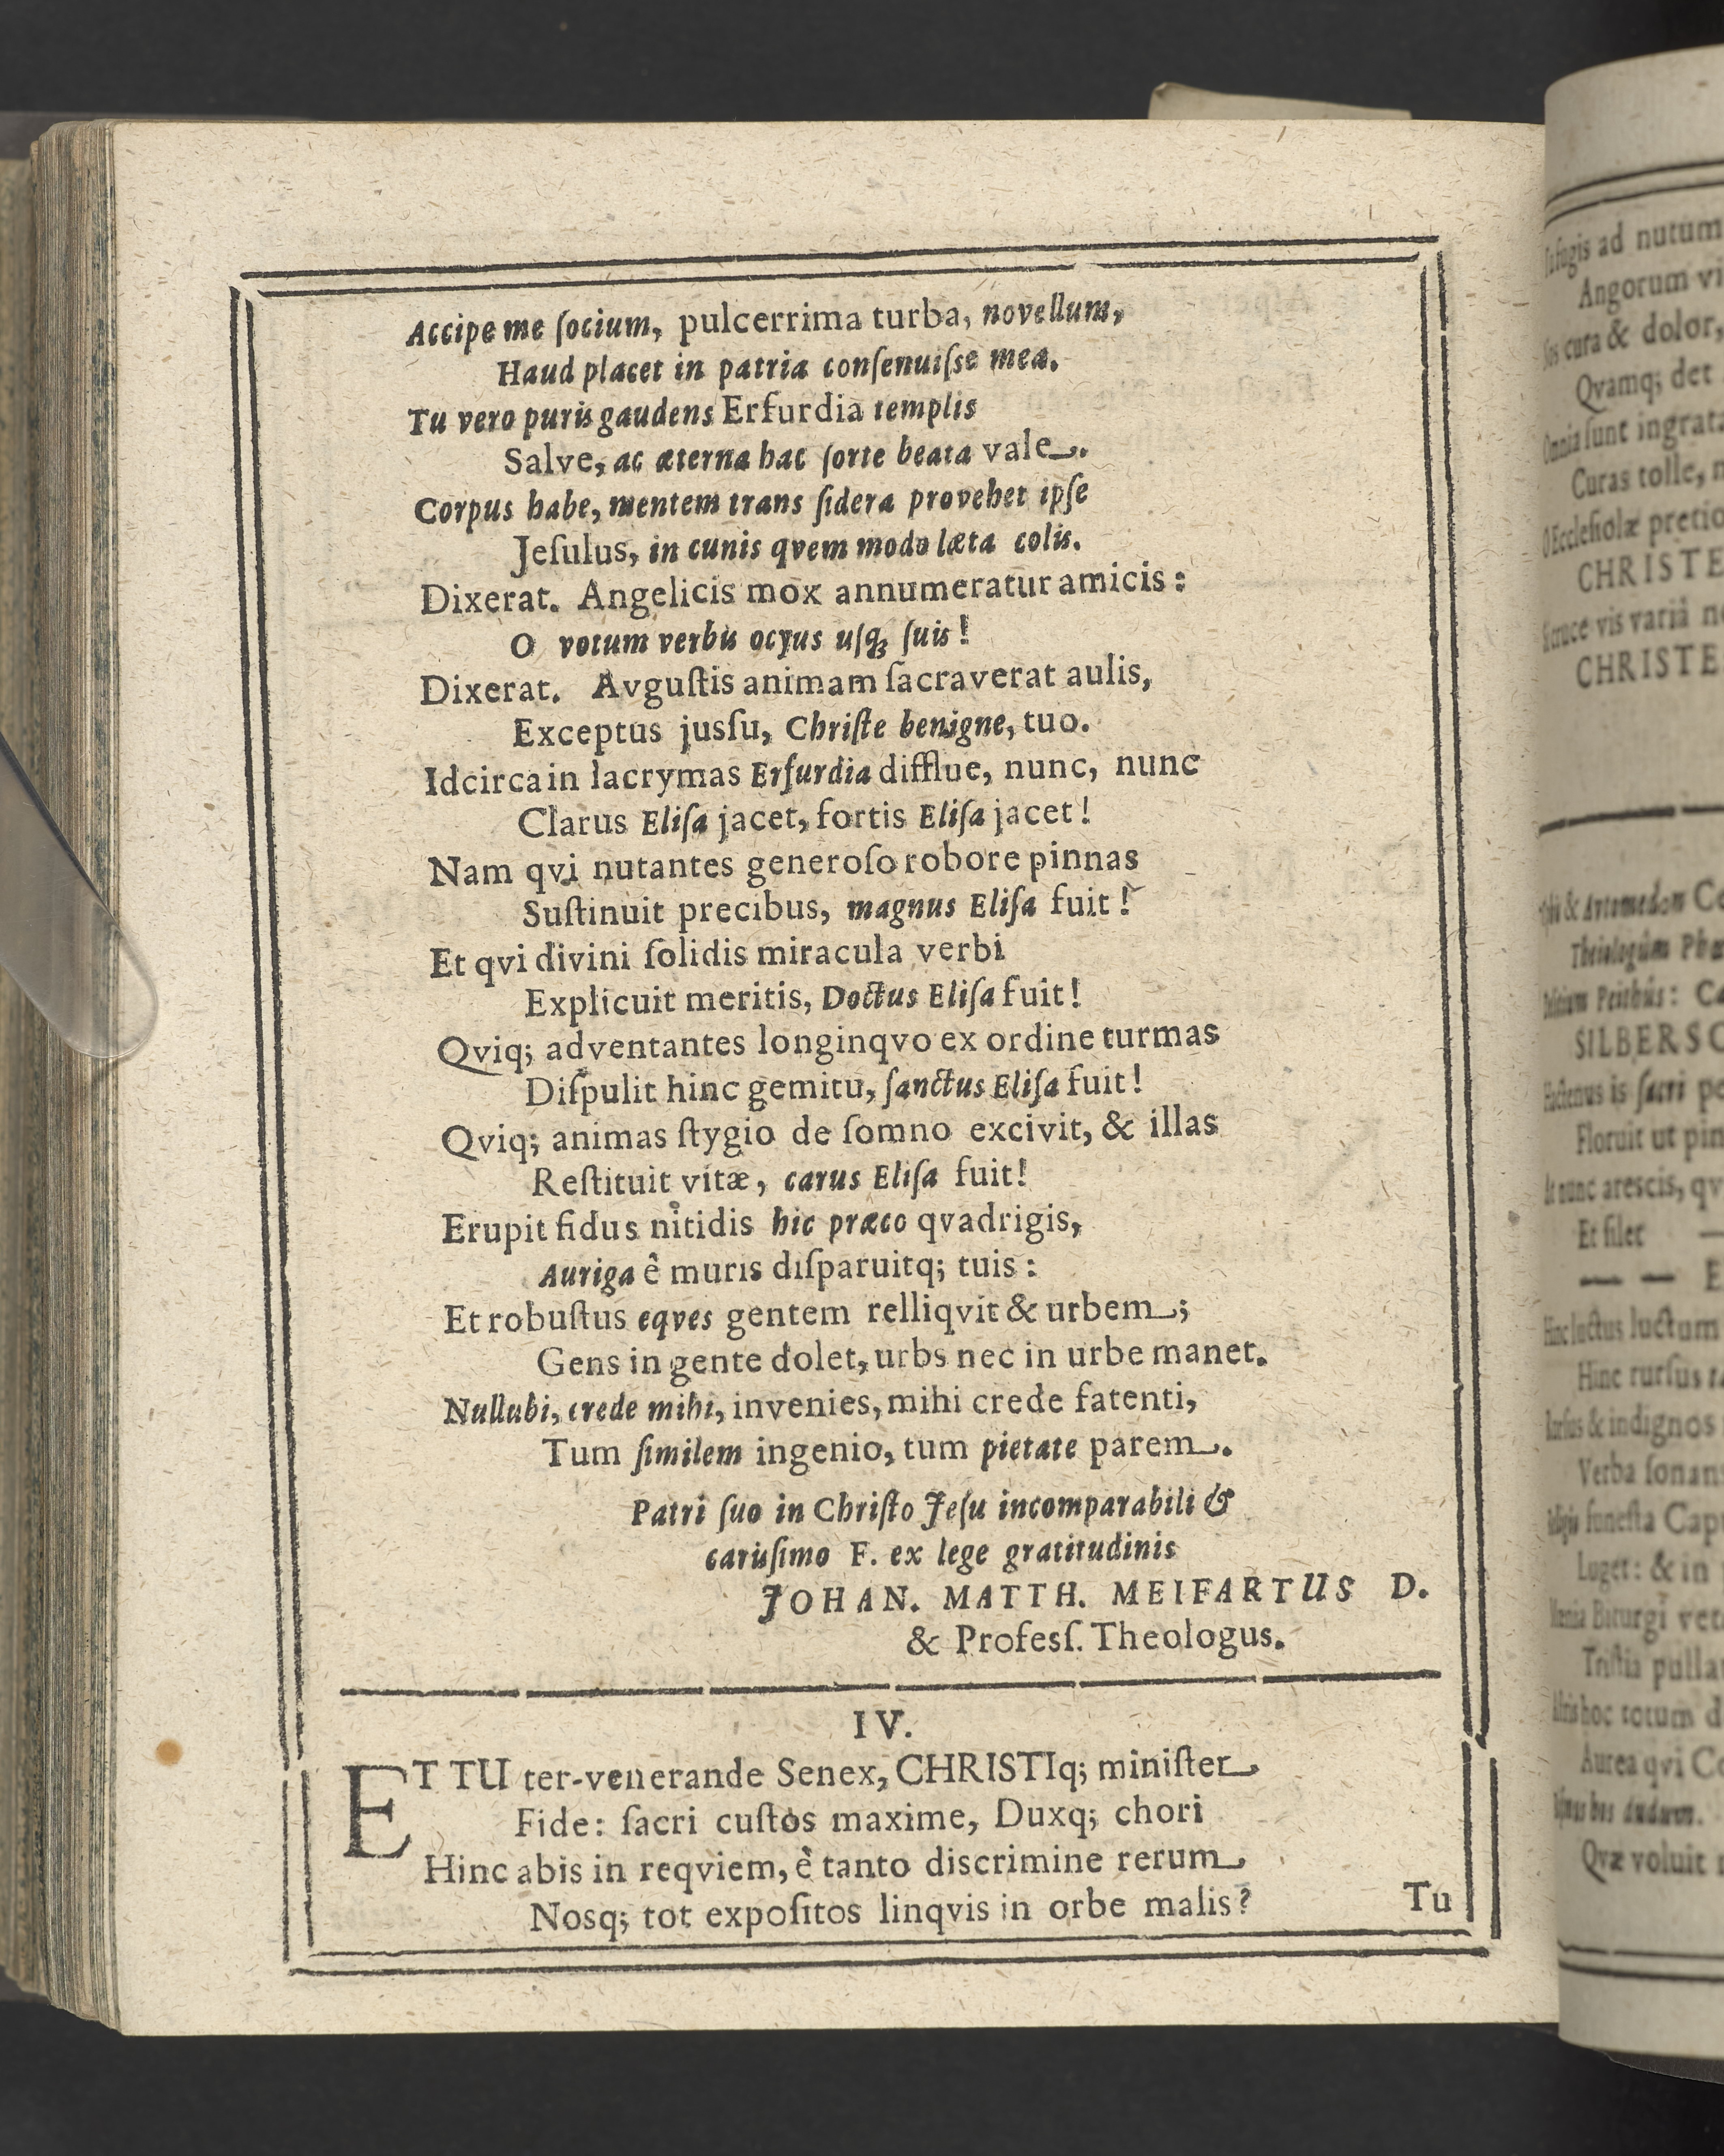 Accipe me ſocium, pulcerrima turba, novellum,
Haud placet in patria conſenuiſse mea.
Tu vero puris gaudens Erfurdia templis
Salve, ac æterna hac ſorte beata vale.
Corpus habe, mentem trans ſidera provehet ipſe
Jeſulus, in cunis qvem modo læta colis.
Dixerat. Angelicis mox annumeratur amicis:
O votum verbis ocyus uſq; ſuis!
Dixerat. Avguſtis animam ſacraverat aulis,
Exceptus jusſu, Chriſte benigne, tuo.
Idcirca in lacrymas Erfurdia difflue, nunc, nunc
Clarus Eliſa jacet, fortis Eliſa jacet!
Nam qvi nutantes generoſo robore pinnas
Suſtinuit precibus, magnus Eliſa fuit!
Et qvi divini ſolidis miracula verbi
Explicuit meritis, Doctus Eliſa fuit!
Qviq; adventantes longinqvo ex ordine turmas
Diſpulit hinc gemitu, ſanctus Eliſa fuit!
Qviq; animas ſtygio de ſomno excivit, & illas
Reſtituit vitæ, carus Eliſa fuit!
Erupit fidus nitidis hic præco qvadrigis,
Auriga ê muris diſparuitq; tuis:
Et robuſtus eqves gentem relliqvit & urbem;
Gens in gente dolet, urbs nec in urbe manet.
Nullubi, crede mihi, invenies, mihi crede fatenti,
Tum ſimilem ingenio, tum pietate parem.
Patri ſuo in Chriſto Jeſu incomparabili &
carisſimo F. ex lege gratitudinis
JOHAN. MATTH. MEIFARTUS D.
& Profesſ. Theologus.
IV.
ET TU ter-venerande Senex, CHRISTIq; miniſter
Fide: ſacri cuſtos maxime, Duxq; chori
Hinc abis in reqviem, è tanto discrimine rerum
Nosq; tot expoſitos linqvis in orbe malis?
Tu
ad nutum
Angorum
cura & dolor,
Qvamq; det
ſunt
Curas tolle,
Eccleſiolæ
CHRISTE
vis variâ
CHRISTE
&
Theiologûm
Peithûs:
is ſacri
Floruit ut
nunc arescis,
Et ſilet
luctus luctum
Hinc rurſus
& indignos
Verba
funeſta
Luget: & in
Triſtia
hoc totum
Aurea qvi
Qvæ voluit